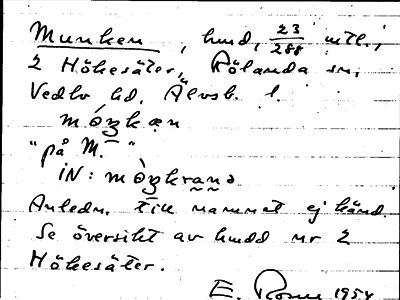 Munken, hmd, 23/288 mtl.,
2 Hökesäter, Rölanda sn,
Vedbo hd, Älvsb. l.
"på M."
Anledn. till namnet ej känd.
Se översikt av hmdd nr 2
Hökesäter.
E. 1954